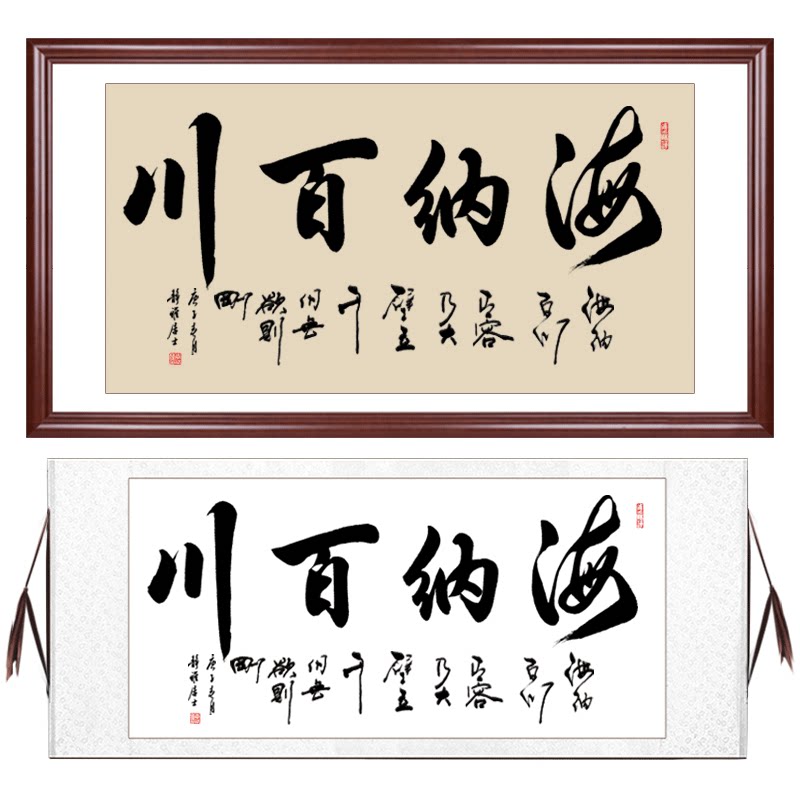 海纳百川
海纳
百川
有容
乃大
壁立
千
仞無
欲則
剛
庚子月
静雅居士
海纳百川
海纳
百川
有容
乃大
壁立
千
仞無
欲則
剛
庚子月
静雅居士